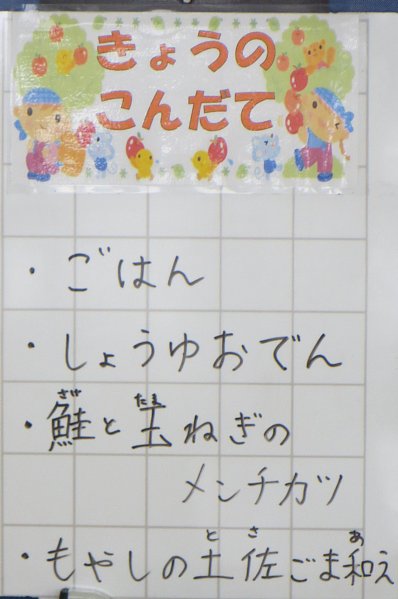 きょうの
こんだて
・ごはん
・しょうゆおでん
ざ たま
・鮭と玉ねぎの
メンチカツ
と さ あ
・もやしの土佐ごま和え